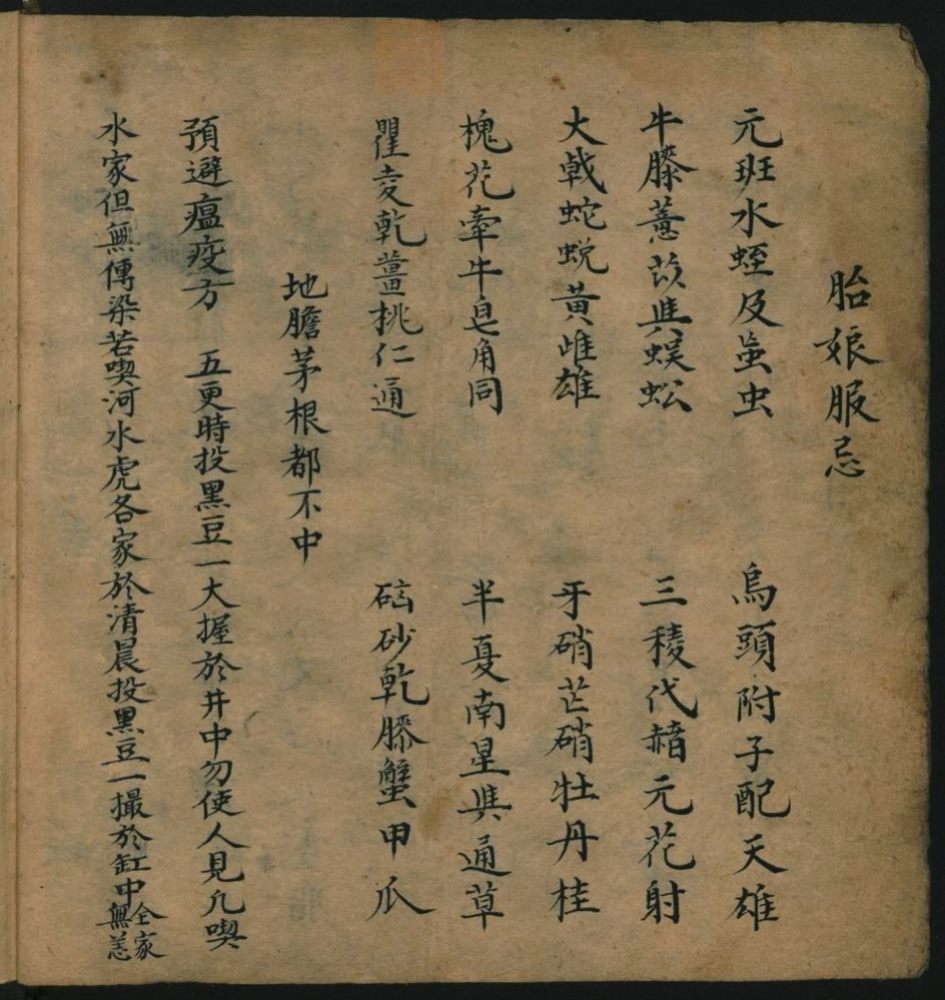 胎娘服忌
元班水蛭及虻虫　烏頭附子配天雄
牛膝薏苡與蜈蚣　三稜代赭元花射
大戟蛇蛻黃雌雄　牙硝芒硝牡丹桂
槐花牽牛皂角同　半夏南星與通草
瞿麦乾薑桃仁通　硇砂乾膝蟹甲爪
地膽茅根都不中
預避瘟疫方　五更時投黑豆一大握於井中勿使人見凢喫
水家但無傳染若喫河水處各家於清晨投黑豆一撮於缸中全家無恙